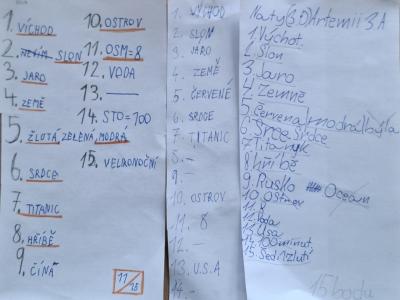 1. VÍCHOD
2. SLON
3. JARO
4. ZEMĚ
5. ŽLUTÁ, ZELENÁ, MODRÁ
6. SRDCE
7. TITANIC
8. HŘÍBĚ
9. ČÍNA
10. OSTROV
11. OSM=8
12. VODA
13. ———
14. STO=100
15. VELIKONOČNÍ
11/15
1. VÝCHOD
2. SLON
3. JARO
4. ZEMĚ
5. ČERVENÉ
6. SRDCE
7. TITANIC
8. -
9. -
10. OSTROV
11. 8
12. —
13. U.S.A
14. —
Artemii 3.A
1. Východ
2. Slon
3. Jaro
4. Země
5. Červená
6. Srdce
7. Titanik
8. hříbě
9. Rusko Ocean
10. Ostrov
12. Voda
13. Usa
14. 100 minut
15.
15 bodů